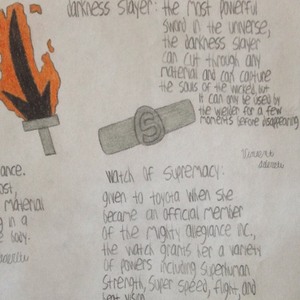 darkness slayer: the most powerful
sword in the universe,
the darkness slayer
can cut through any
material and can capture
the souls of the wicked, but
it can only be used by
the wielder for a few
moments before disappearing
S
ance.
ost,
material
g in a
body.
Watch of Supremacy:
given to toyota when she
became an official member
of the Mighty Allegiance inc.,
the watch grants her a variety
of powers including superhuman
strength, super speed, flight, and
heat vision